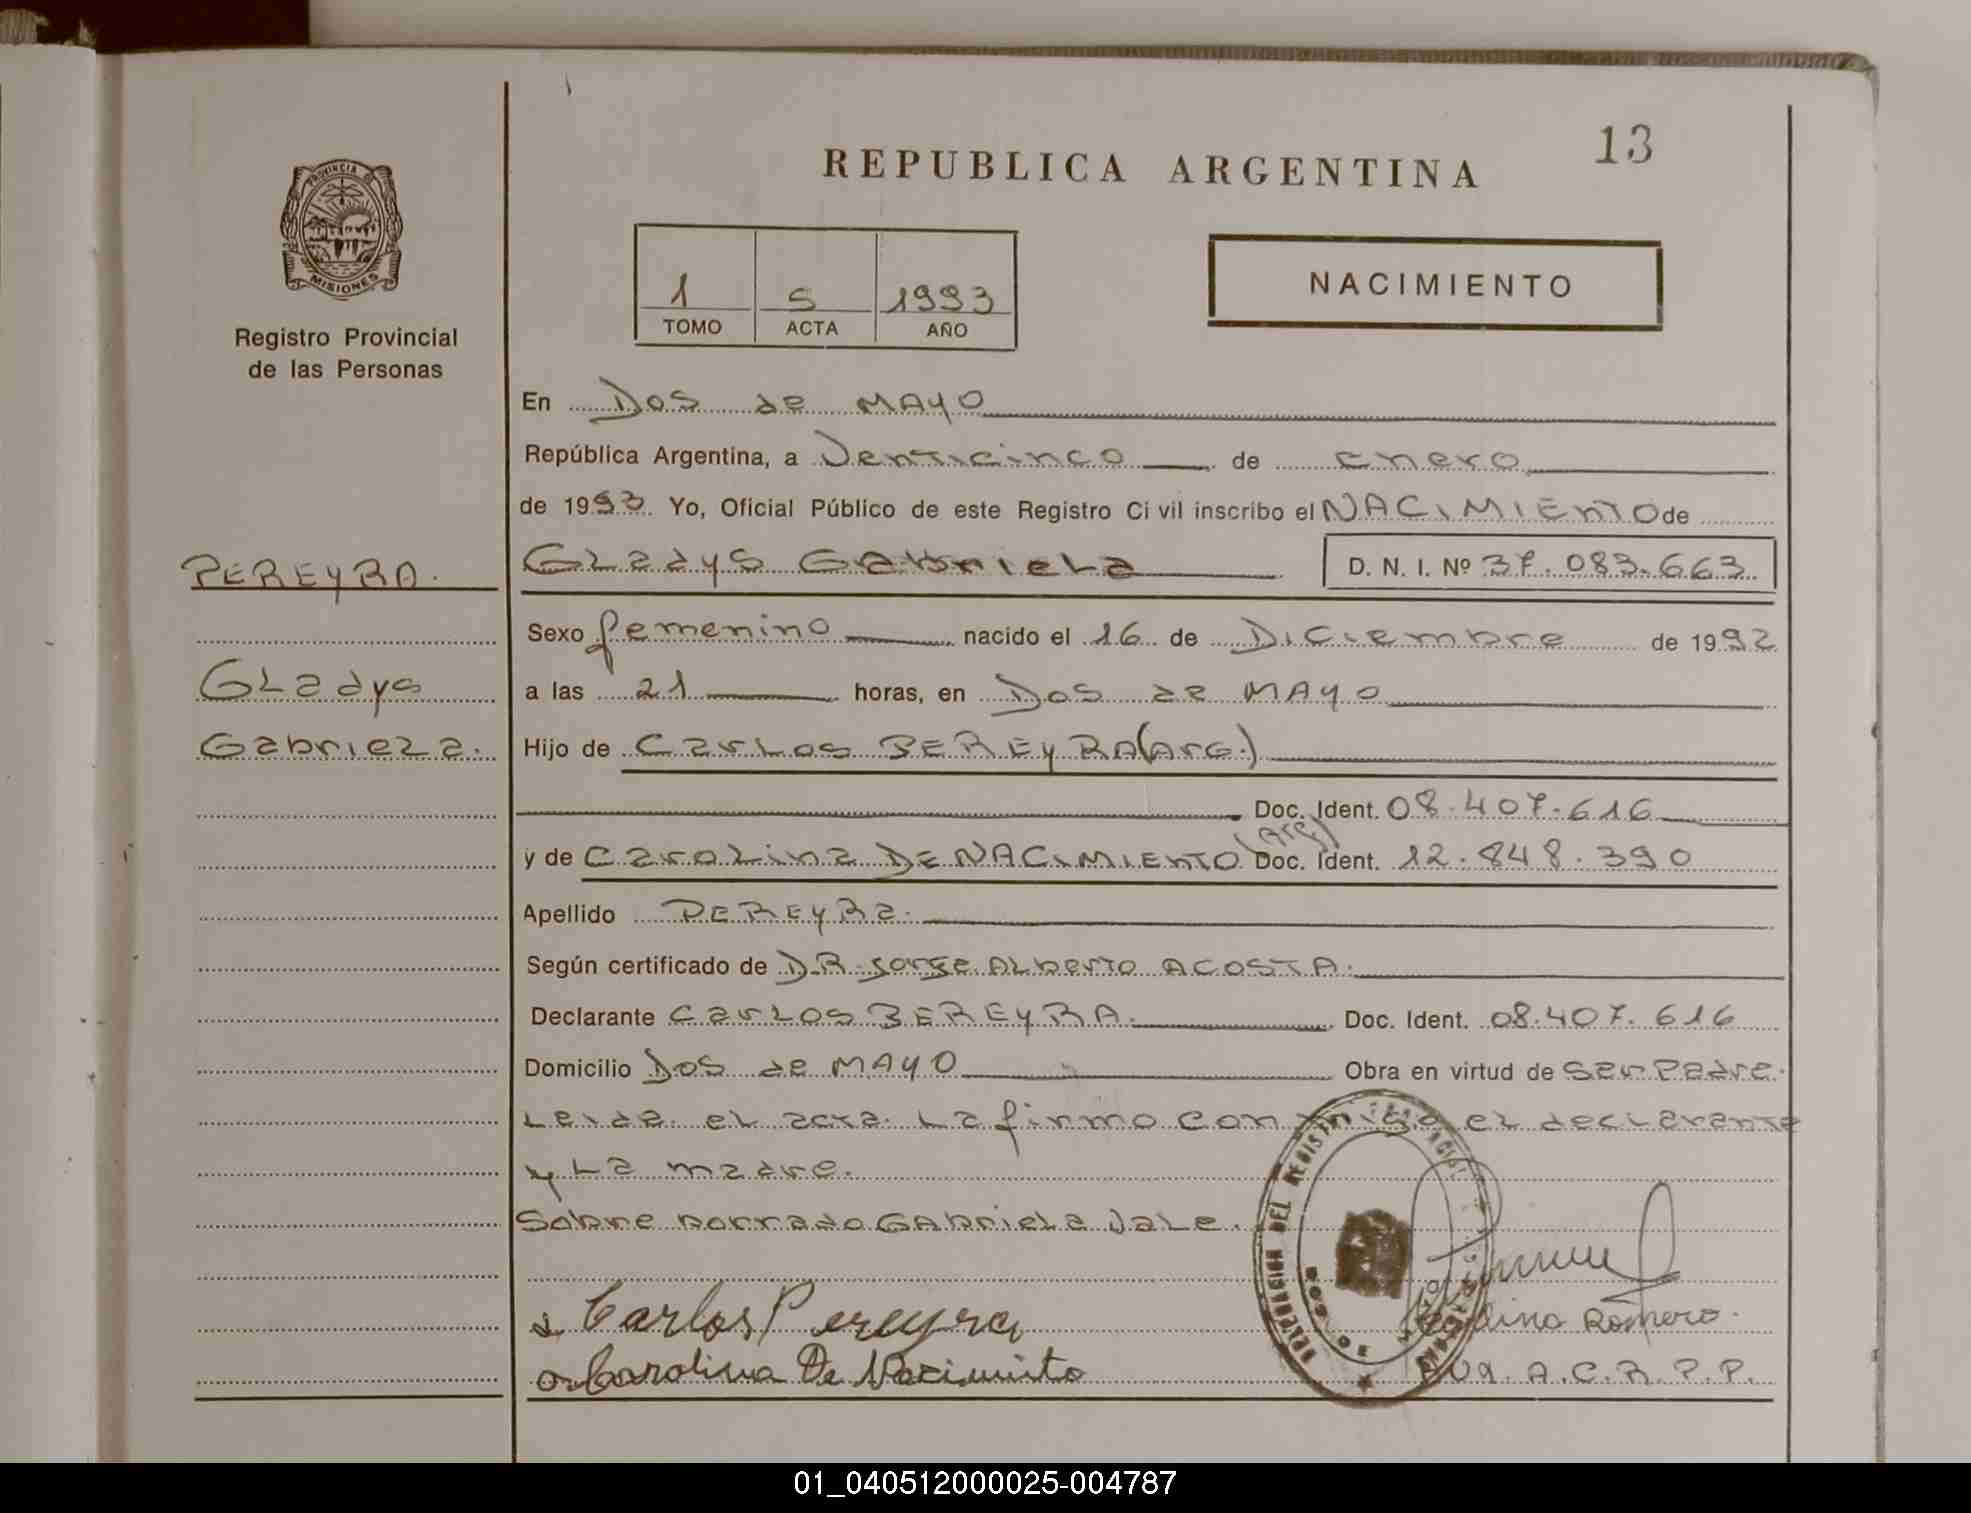 13
REPUBLICA ARGENTINA
PROVINCIA
MISIONES
Registro Provincial
de las Personas
1 5 1993
TOMO ACTA AÑO
NACIMIENTO
En Dos de MAYO
República Argentina, a Venticinco de enero
de 1993. Yo, Oficial Público de este Registro Civil inscribo el NACIMIENTO de
PEREYRA.
GLadys GabrieLa D. N. I. Nº 37.083.663
Sexo femenino nacido el 16 de Diciembre de 1992
GLadys
a las 21 horas, en Dos de MAYO
GabrieLa.
Hijo de CarLos PEREYRA (Arg.)
Doc. Ident. 08.407.616
y de CaroLina DE NACIMIENTO (Arg) Doc. Ident. 12.848.390
Apellido PEREYRa.
Según certificado de DR Jorge ALberto ACOSTA.
Declarante CarLos PEREYRA. Doc. Ident. 08.407.616
Domicilio Dos de MAYO Obra en virtud de ser Padre.
Leida el acta. La firmo conmigo el decLarante
y La madre.
Sobre borrado GAbrieLa VaLe.
Carlos Pereyra
Carolina De Nacimiento
Romero.
A.C.R.P.P.
01_040512000025-004787